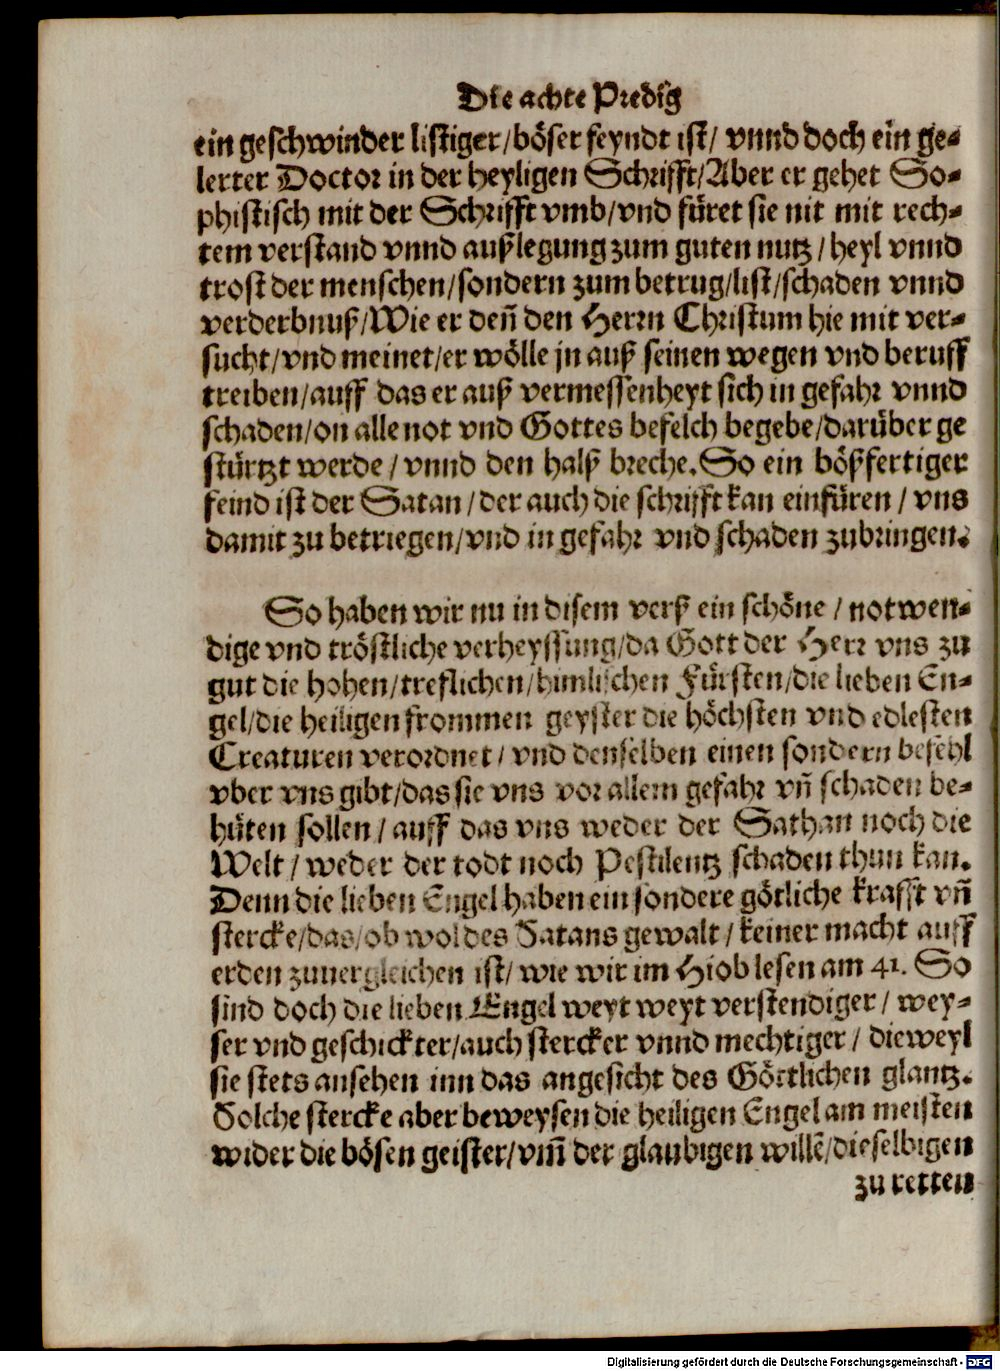 Die achte Predig
ein geschwinder listiger/böser feyndt ist/ vnnd doch ein ge-
lerter Doctor in der heyligen Schrifft/Aber er gehet So-
phistisch mit der Schrifft vmb/vnd füret sie nit mit rech-
tem verstand vnnd außlegung zum guten nutz/heyl vnnd
trost der menschen/sondern zum betrug/list/schaden vnnd
verderbnuß/Wie er deñ den Herrn Christum hie mit ver-
sucht/vnd meinet/er wölle jn auß seinen wegen vnd beruff
treiben/auff das er auß vermessenheyt sich in gefahr vnnd
schaden/on alle not vnd Gottes befelch begebe/darüber ge
stürtzt werde/vnnd den halß breche. So ein bößfertiger
feind ist der Satan/der auch die schrifft kan einfüren/vns
damit zu betriegen/vnd in gefahr vnd schaden zubringen.
So haben wir nu in disem verß ein schöne/notwen-
dige vnd tröstliche verheyssung/da Gott der Herr vns zu
gut die hohen/treflichen/himlischen Fürsten/die lieben En-
gel/die heiligen frommen geyster die höchsten vnd edlesten
Creaturen verordnet/vnd denselben einen sondern befehl
vber vns gibt/das sie vns vor allem gefahr vñ schaden be-
hüten sollen/auff das vns weder der Sathan noch die
Welt/weder der todt noch Pestilentz schaden thun kan.
Denn die lieben Engel haben ein sondere götliche krafft vñ
stercke/das/ob wol des Satans gewalt/keiner macht auff
erden zuuergleichen ist/wie wir im Hiob lesen am 41. So
sind doch die lieben Engel weyt weyt verstendiger/wey-
ser vnd geschickter/auch stercker vnnd mechtiger/dieweyl
sie stets ansehen inn das angesicht des Göttlichen glantz.
Solche stercke aber beweysen die heiligen Engel am meisten
wider die bösen geister/vm̃ der glaubigen willẽ/dieselbigen
zu retten
Digitalisierung gefördert durch die Deutsche Forschungsgemeinschaft - DFG